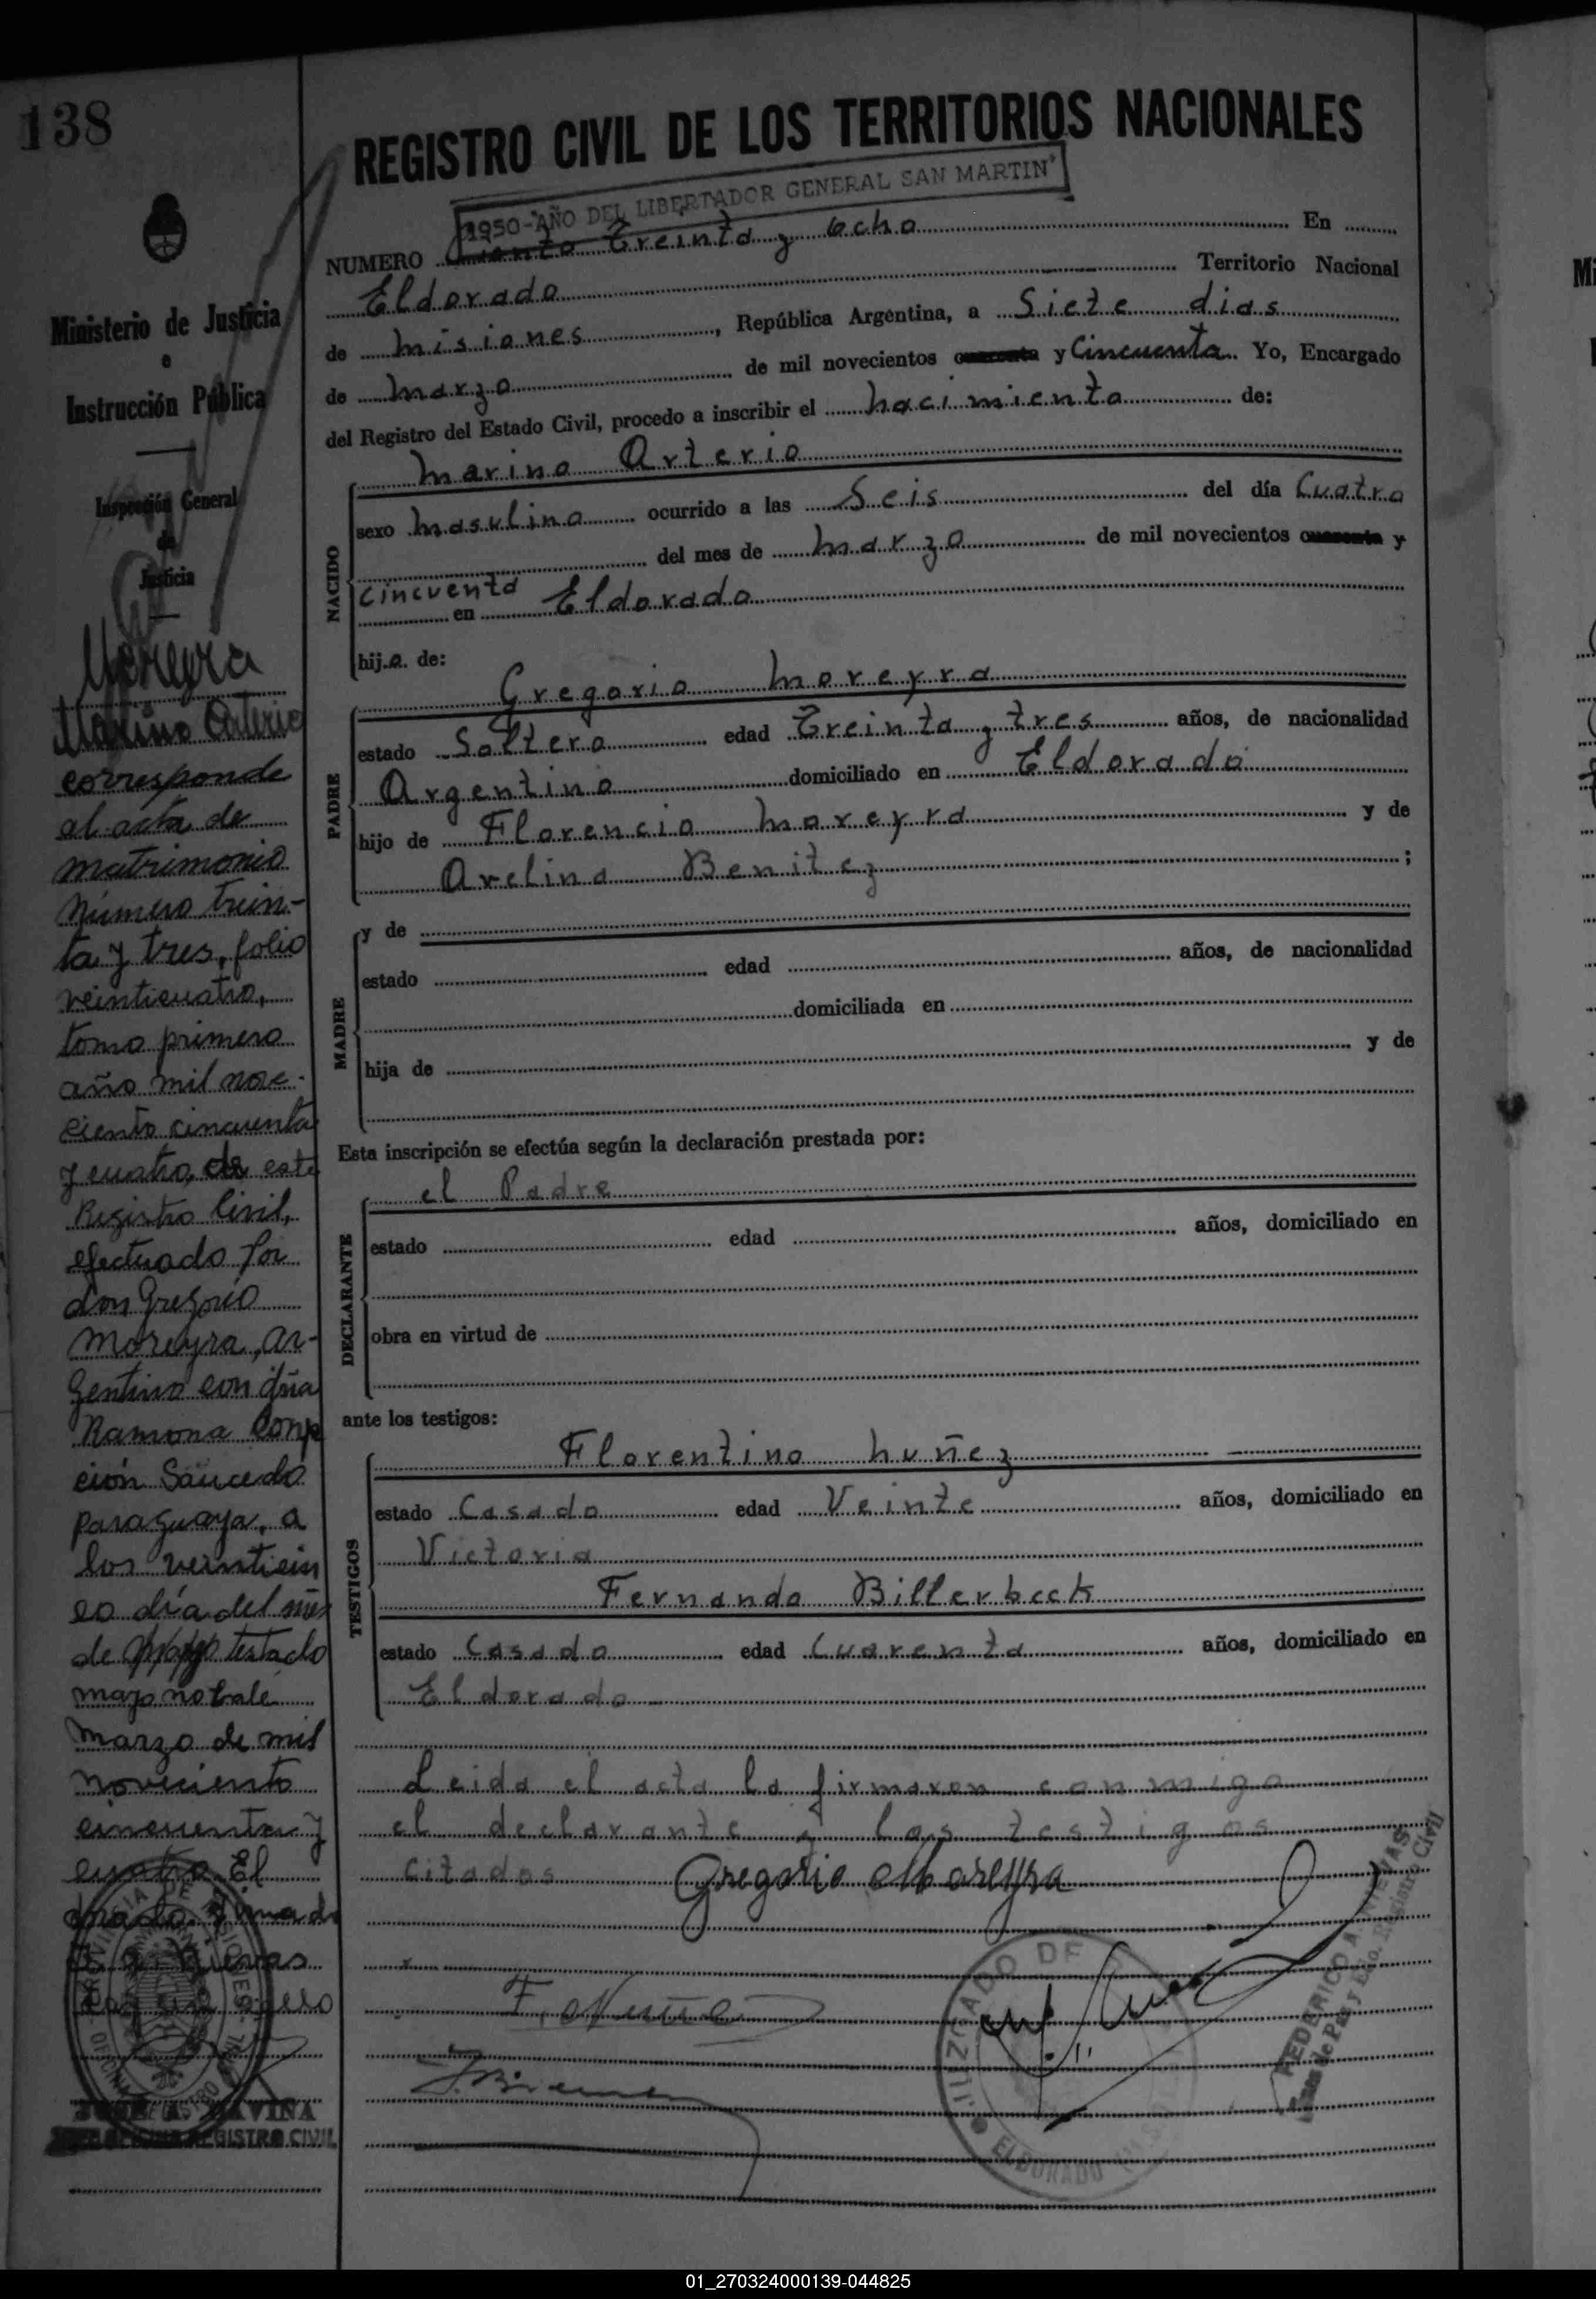 138
REGISTRO CIVIL DE LOS TERRITORIOS NACIONALES
1950-"AÑO DEL LIBERTADOR GENERAL SAN MARTIN"
NUMERO Ciento Treinta y ocho En
Eldorado Territorio Nacional
de misiones, República Argentina, a Siete dias
de marzo de mil novecientos cuarenta y Cincuenta. Yo, Encargado
del Registro del Estado Civil, procedo a inscribir el nacimiento de:
marino Arterio
NACIDO
sexo masulino ocurrido a las Seis del día Cuatro
del mes de marzo de mil novecientos cuarenta y
cincuenta en Eldorado
hij.o. de:
Gregorio moreyra
PADRE
estado Soltero edad Treinta y tres años, de nacionalidad
Argentino domiciliado en Eldorado
hijo de Florencio moreyra y de
Avelina Benitez ;
y de
MADRE
estado edad años, de nacionalidad
domiciliada en
hija de y de
Esta inscripción se efectúa según la declaración prestada por:
el Padre
DECLARANTE
estado edad años, domiciliado en
obra en virtud de
ante los testigos:
Florentino nuñez
TESTIGOS
estado Casado edad Veinte años, domiciliado en
Victoria
Fernando Billerbeck
estado Casado edad Cuarenta años, domiciliado en
Eldorado
Leida el acta la firmaron conmigo
el declarante y los testigos
citados Gregorio Moreyra
F. Nuñez
ELDORADO
FEDERICO A. NIEVAS
Juez de Paz y Enc. Registro Civil
Ministerio de Justicia
e
Instrucción Pública
Inspección General
de
Justicia
Moreyra
Marino Arterio
corresponde
al acta de
matrimonio
número trein-
ta y tres, folio
veinticuatro,
tomo primero
año mil nove-
ciento cincuenta
y cuatro, de este
Registro Civil,
efectuado por
don Gregorio
Moreyra, ar-
gentino con dña
Ramona Conp
ción Saucedo
paraguaya, a
los veinticin
co día del mes
de Mayo testado
mayo no bale
marzo de mil
noveciento
cincuenta y
cuatro. El
Nievas
sello
REGISTRO CIVIL
01_270324000139-044825